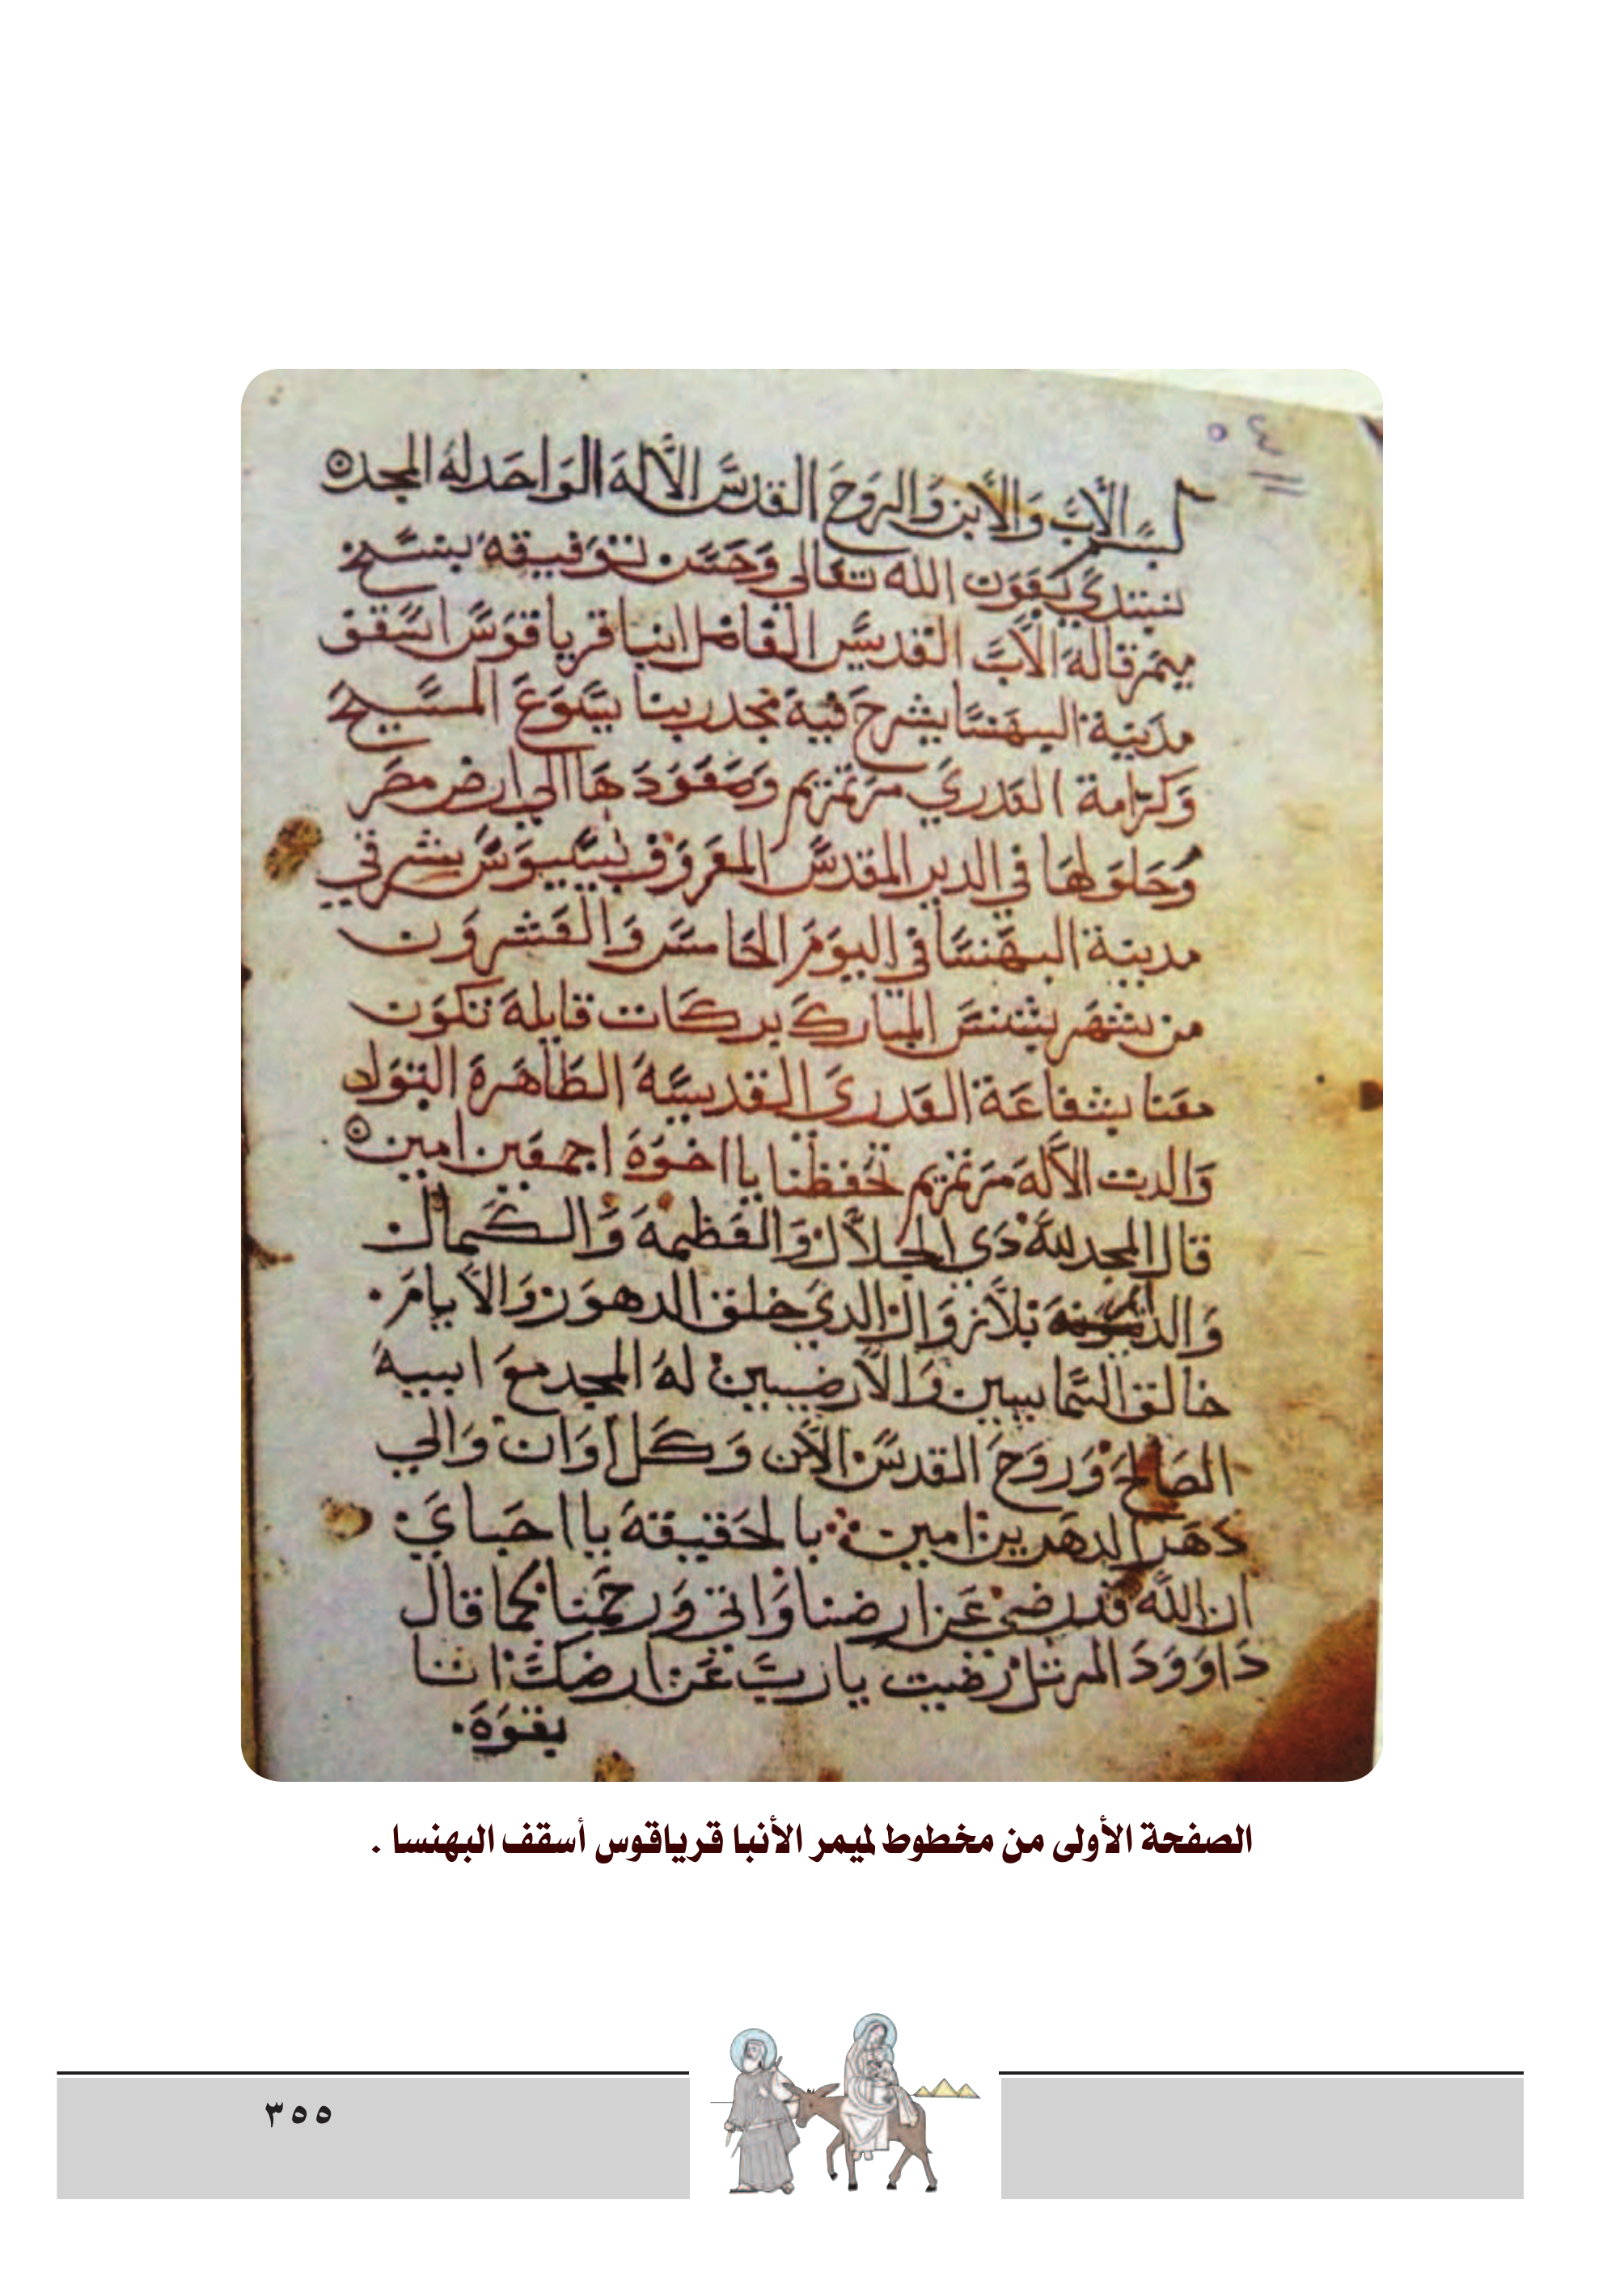 ٤٠
بسم الاب والابن والروح القدس الاله الواحد له المجد
نبتدي بعون الله تعالي وحسن توفيقه بنسخ
ميمر قاله الاب القديس الفاضل انبا قرياقوس اسقف
مدينة البهنسا يشرح فيه مجد ربنا يسوع المسيح
وكرامة العدري مرتمريم وصعودها الي ارض مصر
وحلولها في الدير المقدس المعروف بشرقي
مدينة البهنسا في اليوم الخامس والعشرون
من شهر بشنس المبارك بركات قايله تكون
معنا بشفاعة العدري القديسه الطاهرة البتول
والدت الاله مرتمريم تحفظنا يا اخوه اجمعين امين
قال المجد لله دي الجلال والعظمه والكمال
بلا زوال الدي خلق الدهور والايام
خالق السماييين والارضيين له المجد مع ابيه
الصالح وروح القدس الان وكل اوان والي
دهر الدهرين امين بالحقيقه يا احباي
ان الله قد رضي عن ارضنا واتي ورحمنا كما قال
داوود المرتل رضيت يارب عن ارضك اننا
بقوه
الصفحة الأولى من مخطوط لميمر الأنبا قرياقوس أسقف البهنسا .
٣٥٥